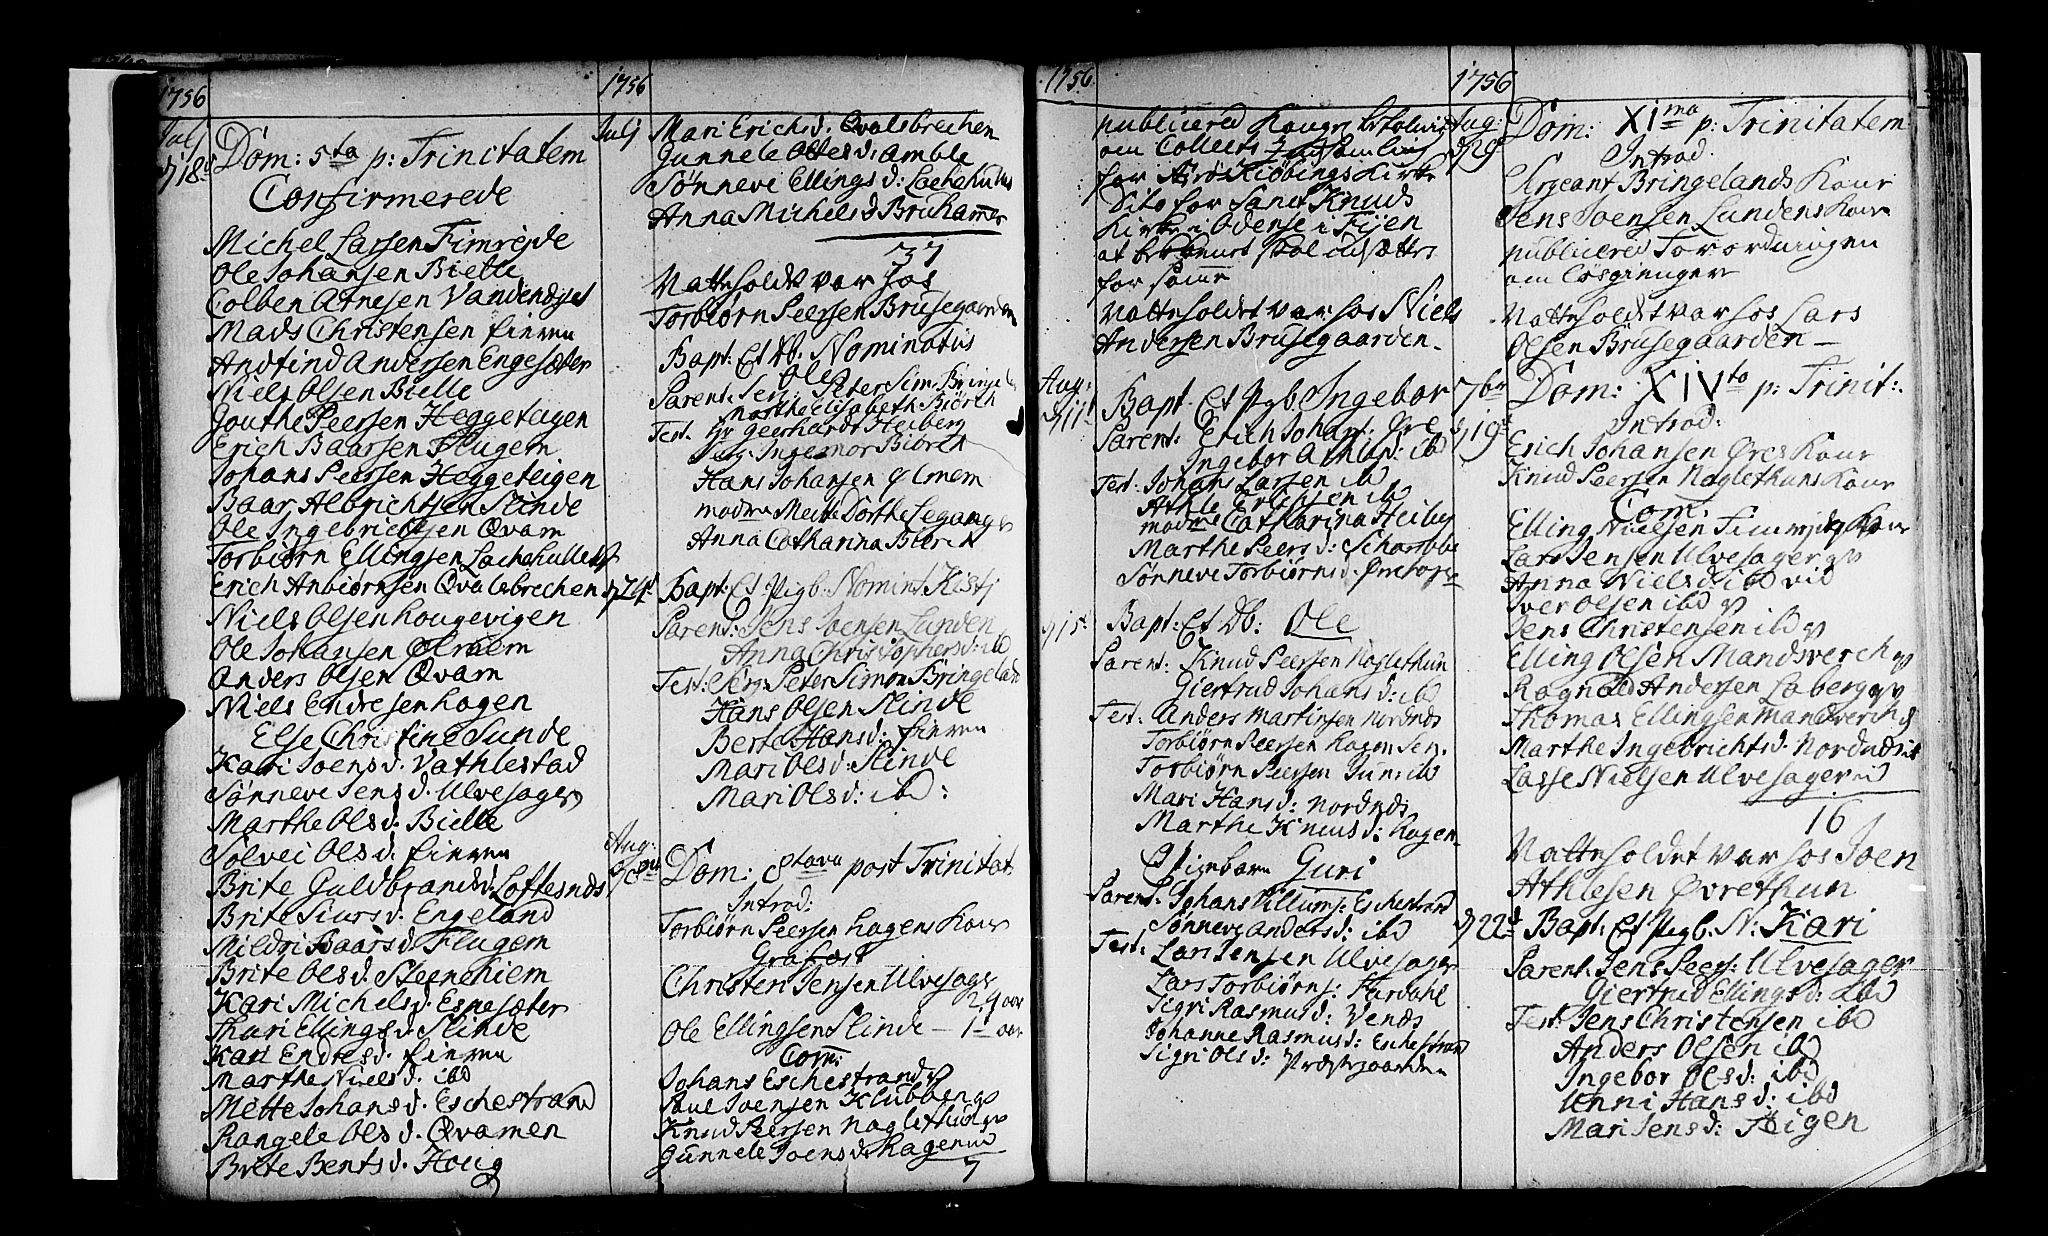 1756
Julj
d 18de
Dom: 5ta p: Trinitatem
Confirmerede
Michel Larsen Fimrejde
Ole Johansen Bielle
Colben Arnesen Vandendjet
Mads Christensen fieren
Andfind Andersen Engesæter
Niels Olsen Bielle
Gouthe Peersen Heggetagen
Erich Baarsen Flugem
Johans Peersen Heggeteigen
Baar Albrichtsen Slinde
Ole Ingebrichtsen Qvam
Torbiørn Ellingsen Lachehullet
Erich Anbiørnsen Qvalsbrechen
Niels Olsen hougevigen
Ole Johansen Ølmem
Anders Olsen Qvam
Niels Endresen hagen
Else Christine Sunde
Kari Joens d. Vathlestad
Sønneve Jens d. Ulvesager
Marthe Ols d. Bielle
Solvei Ols d. fieren
Brite Guldbrands d: Loftesnds
Brite Siurs d. Engeland
Mildri Baars d. Flugem
Brite Ols d. Steenhiem
Kari Michels d. Esnesæter
Thuri Ellings d. Slinde
Kari Endres d. fieren
Marthe Niels d. ibd
Mette Johans d. Eschestrand
Rangele Ols d. Qvamen
Brite Bents d. Houg
1756
Julj
Mari Erichs d. Qvalsbrechen
Gunnele Ottes d: Amble
Sønneve Ellings d: Lachehullet
Anna Michels d Bruhammer
37
Natteholdt var hos
Torbiørn Peersen Brusegaarden
Bapt: Et Db. Nominatus
Ole
Parent: Serj: Peter Sim: Bringel
Marthe Elisabeth Biørth
Test. Hr Geerhardt Heiberg
Jfr: Ingebor Biørth
Hans Johansen Ølmem
madme Mette Dorthe Leganger
Anna Catharina Biørth
d 24de
Bapt: Et Pigb. Nomint Kistj
Parent: Jens Joensen Lunden
Anna Christophers d: ibd
Test: Serg: Peter Simon Bringeland
Hans Olsen Slinde
Berte Hans d: fieren
Mari Ols d: Slinde
Mari Ols d: ibd:
Aug:
d 8de
Dom: 8tava post Trinitat
Introd:
Torbiørn Peersen hagens Kone
Grafæst
Christen Jensen Ulvesager
29 aar
Ole Ellingsen Slinde — 1 1/2 aar
Com:
Johans Eschestrand
Poul Joensen Klubben
Knud Peersen Naglethun
Gunnele Joens d: hagen
7
1756
publicered
om Collects Indsamling
for Ærøe Kiøbings Kirke
Dito for Sanct Knuds
Kirke i Odense i Fyen
for samme
Natteholdet var hos Niels
Andersen Brusegaarden.
Aug:
d 11te
Bapt. Et Pigb. Ingebor
Parent. Erich Johans: Øre
Ingebor Athles d: ibd
Test. Johans Larsen ibd
Athle Erichsen ibd
madme Catharina Heiberg
Marthe Peers d:
Sønneve Torbiørns d.
d 15.
Bapt: Et Db: Ole
Parent: Knud Peersen Naglethun
Giertrud Johans d: ibd
Test: Anders Martinsen Nordnds
Torbiørn Peersen hagen Sen.
Torbiørn Peersen Jun: ibd
Mari Hans d: Nordnds
Marthe Knuds d: hagen
Pigebarn Guri
Parent: Johans Villums: Eschestrand
Sønneve Anders d: ibd
Test: Lars Jensen Ulvesager
Lars Torbiørns:
Sigri Rasmus d: Vends
Johanne Rasmus d: Eschestrand
Sigri Ols d: Præstegaarden
1756
Aug:
d 29
Dom: XIma p: Trinitatem
Introd.
Sergeant Bringelands Kone
Jens Joensen Lundens Kone
publicered Forordningen
om
Natteholdt var hos Lars
Olsen Brusegaarden —
7br
d 19de
Dom: XIVta p: Trinit:
Introd:
Erich Johansen Øres Kone
Knud Peersen Naglethuns Kone
Com:
Elling Nielsen Fimrejde
Lars Jensen Ulvesager
Anna Niels d: ibd
Iver Olsen ibd
Jens Christensen ibd
Elling Olsen Mandsverch
Ragnald Andersen Laberg
Thomas Ellingsen Mandverch
Marthe Ingebrichts d. Nordnds
Lasse Nielsen Ulvesager
16
Natteholdet var hos Joen
Athlesen Øvrethun
d 22de
Bapt. Et Pigb. N: Kari
Parent. Jens Peers: Ulvesager
Giertrud Ellings d: ibd
Test: Jens Christensen ibd
Anders Olsen ibd
Ingebor Ols d: ibd
Unni Hans d: ibd
Mari Jens d: Teigen